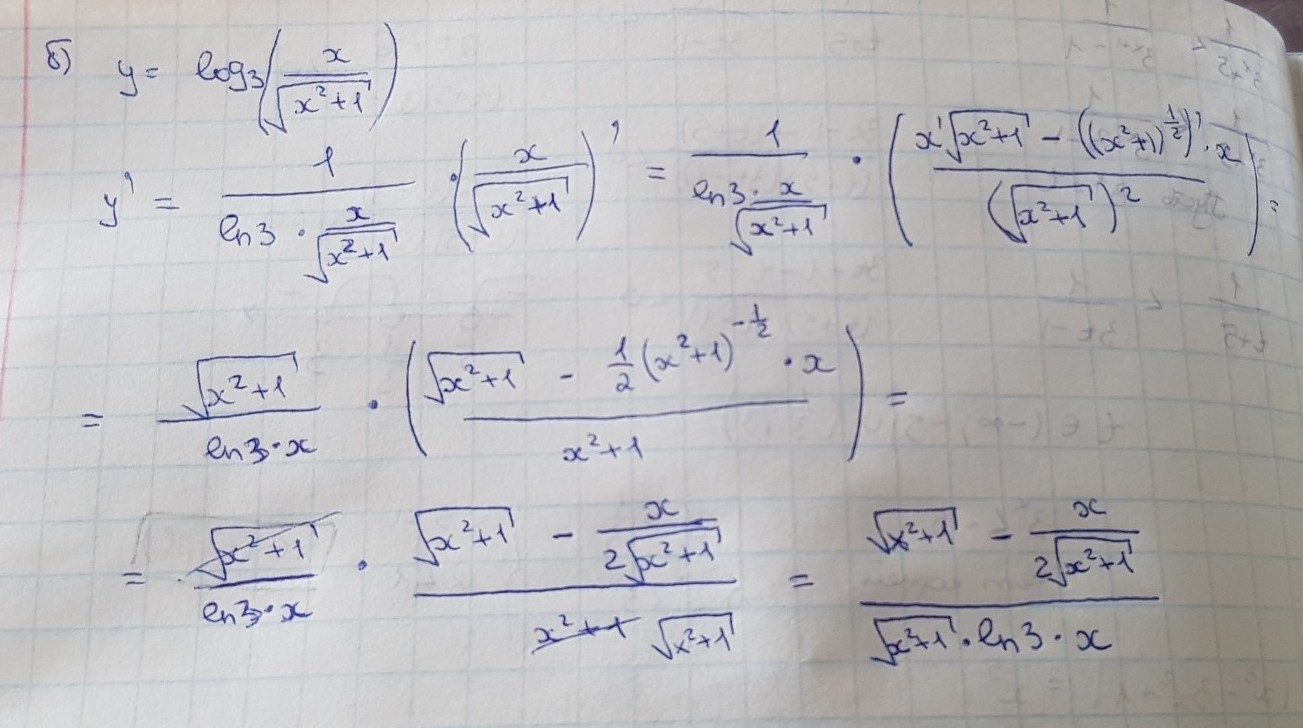 б) y = log₃(x/√(x²+1))
y' = 1/(ln3 · x/√(x²+1)) · (x/√(x²+1))' = 1/(ln3 · x/√(x²+1)) · ((x'√(x²+1) − ((x²+1)^(1/2))' · x)/(√(x²+1))²) =
= √(x²+1)/(ln3·x) · ((√(x²+1) − 1/2(x²+1)^(−1/2) · x)/(x²+1)) =
= √(x²+1)/(ln3·x) · (√(x²+1) − x/(2√(x²+1)))/(x²+1 √(x²+1)) = (√(x²+1) − x/(2√(x²+1)))/(√(x²+1)·ln3·x)